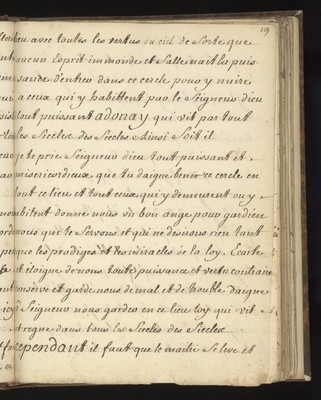 19
lieu avec toutes les vertus du ciel de Sorte que
aucun Esprit immonde et Salle nait la puis
sance d'entrer dans ce cercle pour y nuire
a ceux qui y habittent par le Seigneur dieu
tout puissant adonay qui vit par tout
les Siecles des Siecles Ainsi Soit il
je te prie Seigneur dieu tout puissant et
misericordieux que tu daigne benir ce cercle en
tout ce lieu et tout ceux qui y demeurent ou y
habitent donne nous un bon ange pour gardien
nous qui te Servons et qui ne desirons rien tant
que les prodiges et les miracles de ta loy. Ecarte
et eloigne de nous toute puissance et vertu contraire
conserve et garde nous de mal et de trouble Daigne
Seigneur nous garder en ce lieu toy qui vit
et regne dans tous les Siecles des Siecles
cependant il faut que le maitre Se leve et